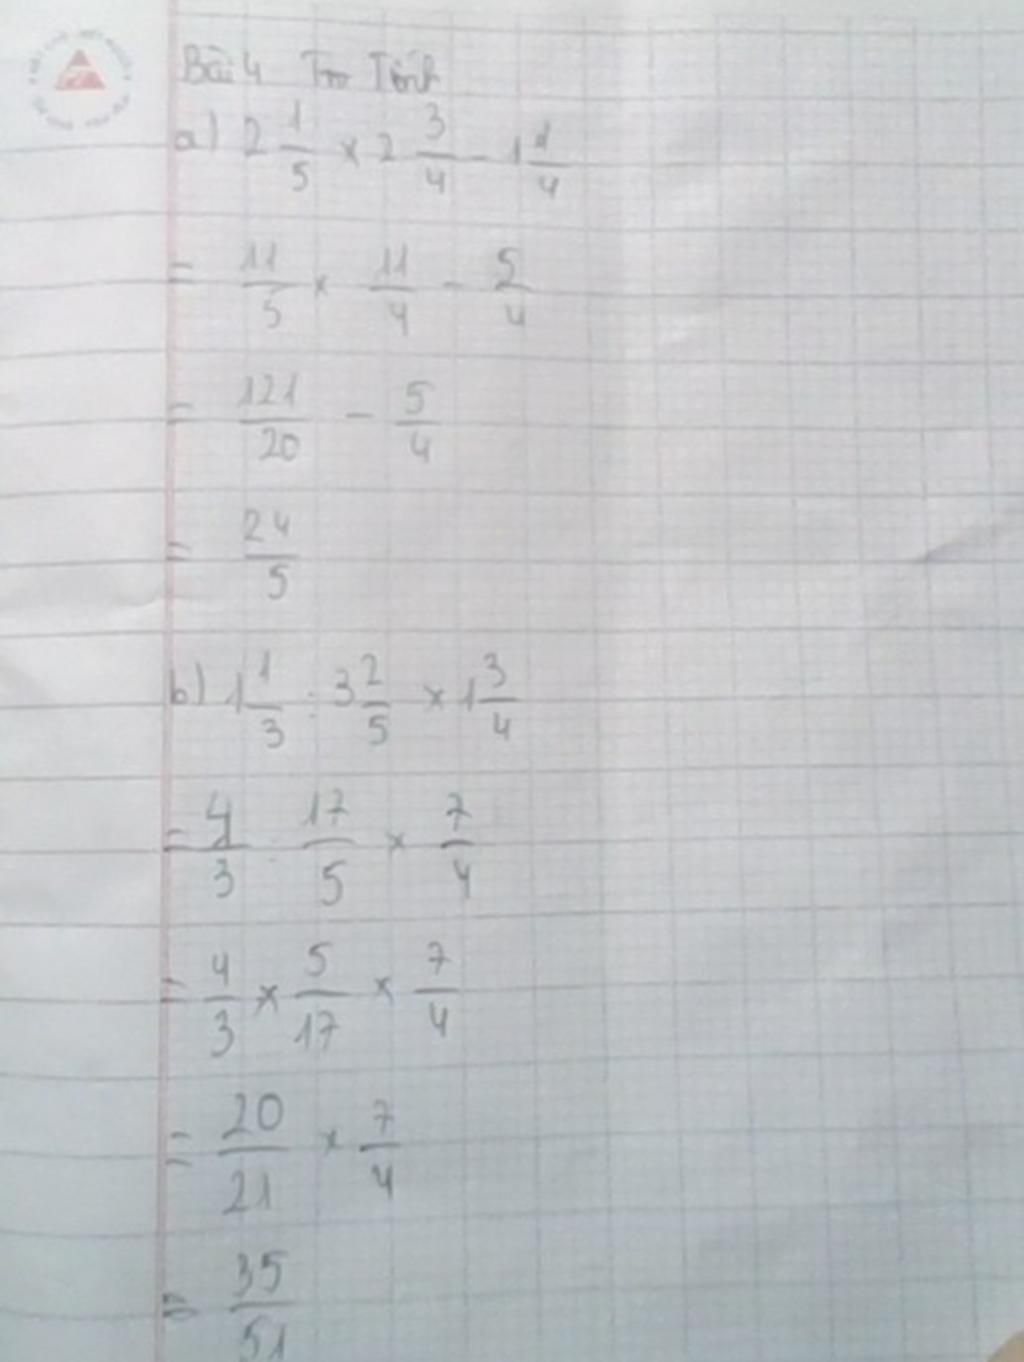 Bài 4 Tính
a) 2 1/5 × 2 3/4 - 1 1/4
= 11/5 × 11/4 - 5/4
= 121/20 - 5/4
= 24/5
b) 1 1/3 : 3 2/5 × 1 3/4
= 4/3 : 17/5 × 7/4
= 4/3 × 5/17 × 7/4
= 20/21 × 7/4
= 35/51